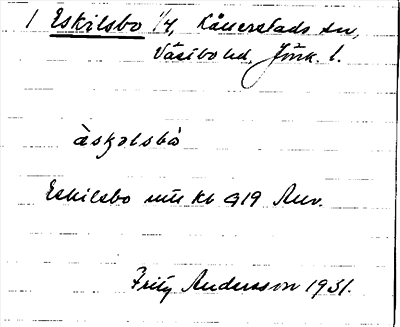 1 Eskilsbo 1/4, Kållerstads sn,
Västbo hd, Jönk. l.
ä̀skəlsbo
Eskilsbo Kb 919 Anv.
Fritz Andersson 1931.